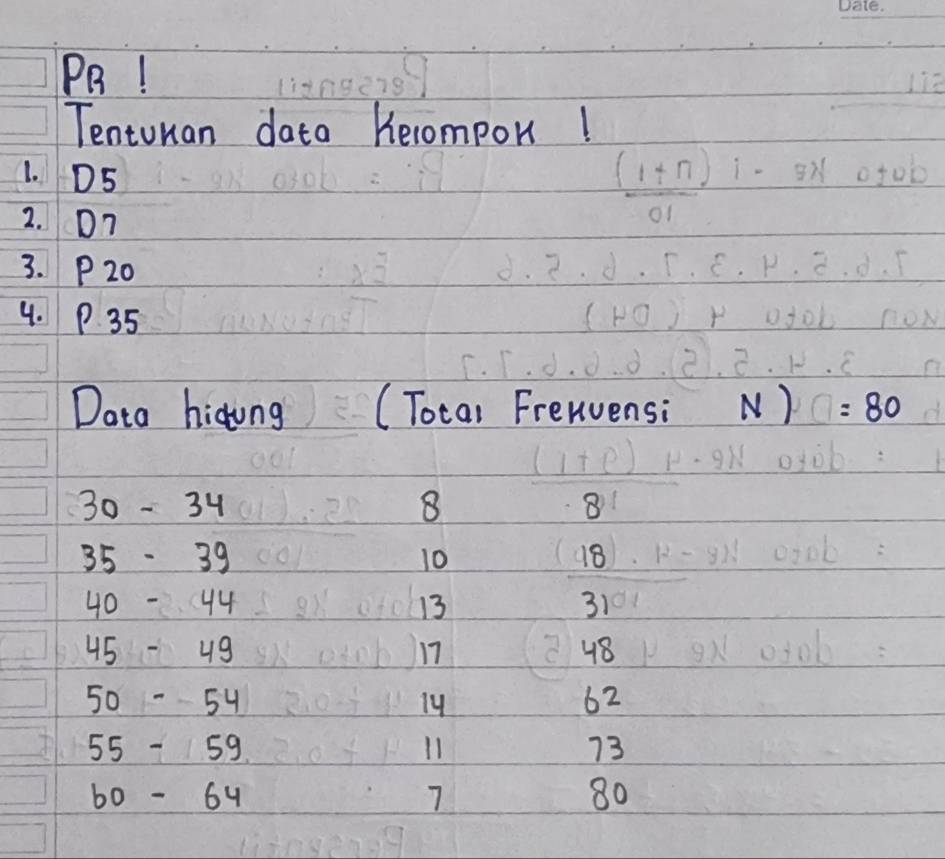 Date.
PR !
Tentukan data Kelompok !
1. D5
2. D7
3. P20
4. P.35
Data hidung (Total Frekuensi N) = 80
30 - 34 8 8
35 - 39 10 18
40 - 44 13 31
45 - 49 17 48
50 - 54 14 62
55 - 59 11 73
60 - 64 7 80